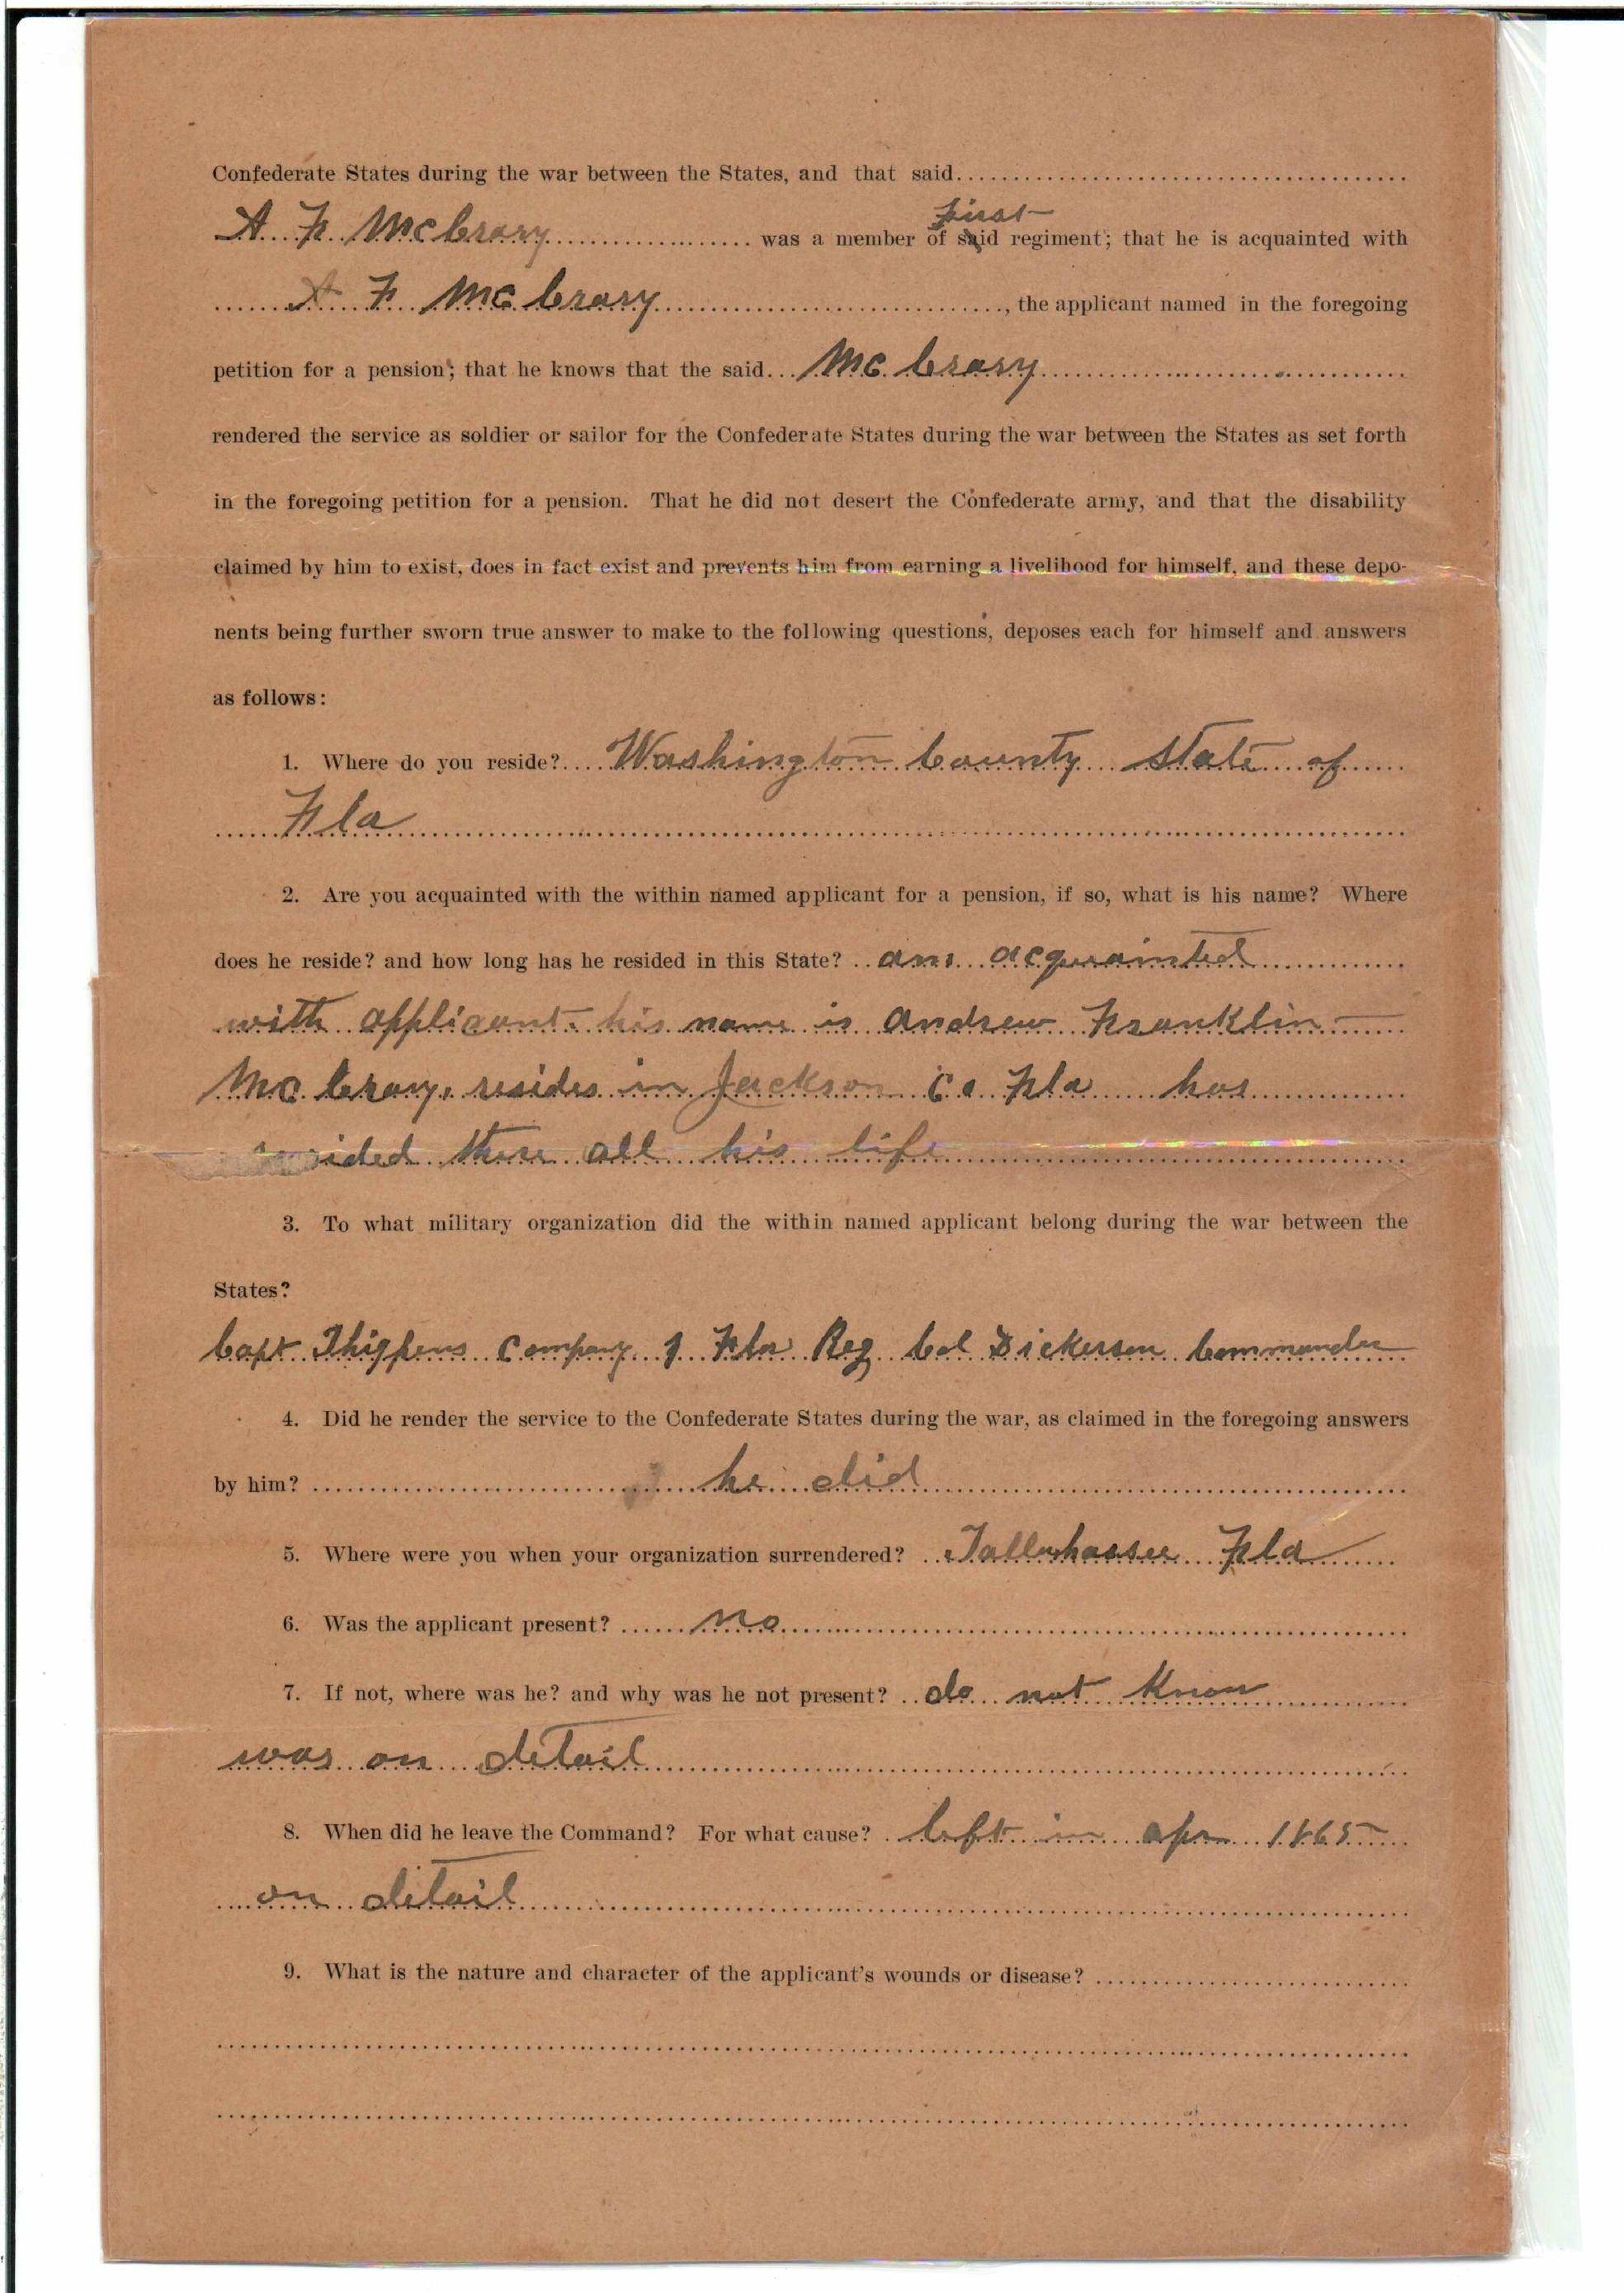 Confederate States during the war between the States, and that said
A. F. McCrary was a member of said First regiment; that he is acquainted with
A F McCrary, the applicant named in the foregoing
petition for a pension; that he knows that the said McCrary
rendered the service as soldier or sailor for the Confederate States during the war between the States as set forth
in the foregoing petition for a pension. That he did not desert the Confederate army, and that the disability
claimed by him to exist, does in fact exist and prevents him from earning a livelihood for himself, and these depo-
nents being further sworn true answer to make to the following questions, deposes each for himself and answers
as follows:
1. Where do you reside? Washington County State of
Fla
2. Are you acquainted with the within named applicant for a pension, if so, what is his name? Where
does he reside? and how long has he resided in this State? am acquainted
with applicant. his name is Andrew Franklin
McCrary. resides in Jackson Co Fla has
resided there all his life
3. To what military organization did the within named applicant belong during the war between the
States?
Capt Thigpens Company 1 Fla Reg Col Dickerson Commander
4. Did he render the service to the Confederate States during the war, as claimed in the foregoing answers
by him? he did
5. Where were you when your organization surrendered? Tallahassee Fla
6. Was the applicant present? no
7. If not, where was he? and why was he not present? do not know
was on detail
8. When did he leave the Command? For what cause? left in apr 1865
on detail
9. What is the nature and character of the applicant's wounds or disease?